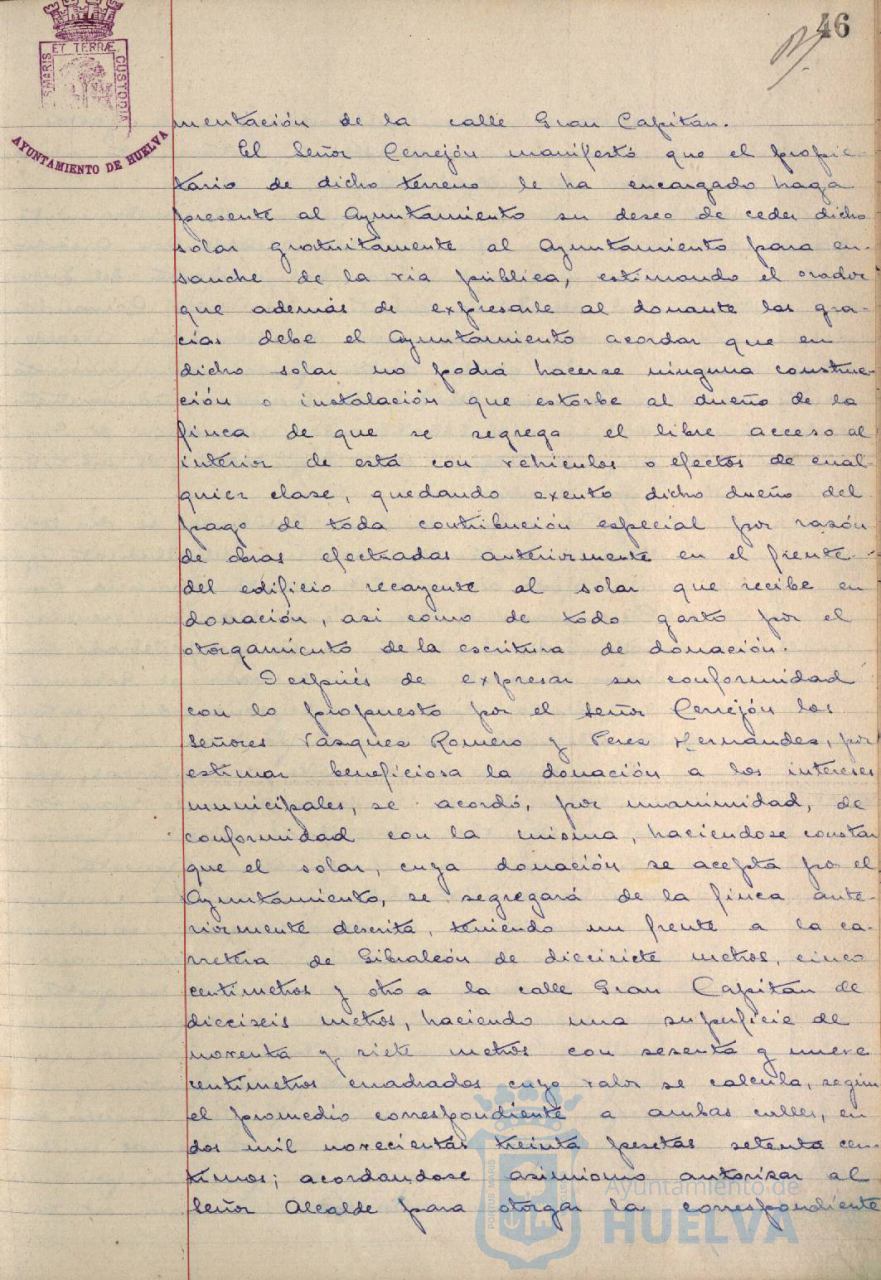 46
SMARIS ET TERRÆ CUSTODIA
AYUNTAMIENTO DE HUELVA
mentación de la calle Gran Capitán.
El Señor Cerrejón manifestó que el propie-
tario de dicho terreno le ha encargado haga
presente al Ayuntamiento su deseo de ceder dicho
solar gratuitamente al Ayuntamiento para en-
sanche de la via pública, estimando el orador
que además de expresarle al donante las gra-
cias debe el Ayuntamiento acordar que en
dicho solar no podrá hacerse ninguna construc-
ción o instalación que estorbe al dueño de la
finca de que se segrega el libre acceso al
interior de esta con vehiculos o efectos de cual-
quier clase, quedando exento dicho dueño del
pago de toda contribución especial por razón
de obras efectuadas anteriormente en el frente
del edificio recayente al solar que recibe en
donación, asi como de todo gasto por el
otorgamiento de la escritura de donación.
Después de expresar su conformidad
con lo propuesto por el Señor Cerrejón los
Señores Vasques Romero y Peres Hernandes, por
estimar beneficiosa la donación a los intereses
municipales, se acordó, por unanimidad, de
conformidad con la misma, haciendose constar
que el solar, cuya donación se acepta por el
Ayuntamiento, se segregará de la finca ante-
riormente descrita, teniendo un frente a la ca-
rretera de Gibraleón de diecisiete metros, cinco
centimetros y otro a la calle Gran Capitán de
dieciseis metros, haciendo una superficie de
noventa y siete metros con sesenta y nueve
centimetros cuadrados cuyo valor se calcula, según
el promedio correspondiente a ambas calles, en
dos mil novecientas treinta pesetas setenta cen-
timos; acordandose asimismo autorizar al
Señor Alcalde para otorgar la correspondiente
Ayuntamiento de
HUELVA